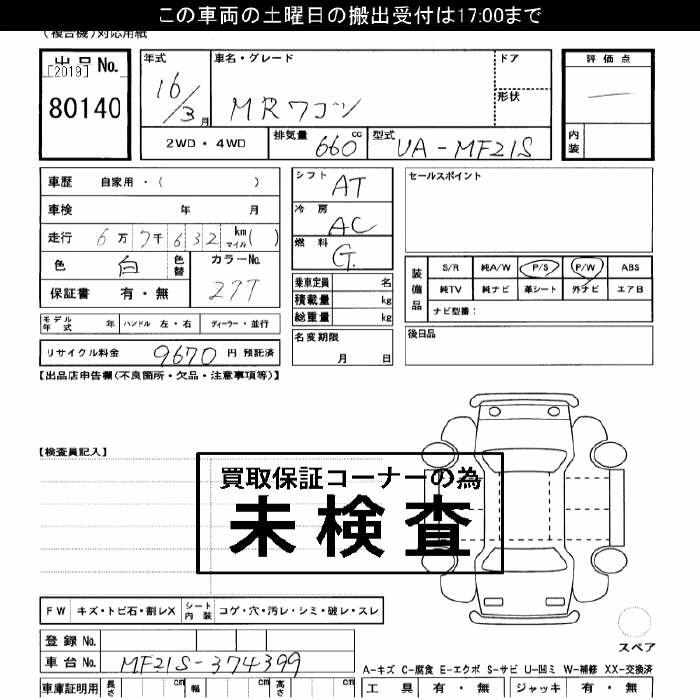 この車両の土曜日の搬出受付は17:00まで
(複合機)対応用紙
出品 No. [2019]
80140
年式 16/3 月
車名・グレード MRワゴン
ドア
形状
評価点 —
内装
2WD・4WD
排気量 660 cc
型式 UA-MF21S
車歴 自家用・( )
車検 年 月
走行 6万7千632 km マイル( )
色 白 色替 カラーNo. Z7T
保証書 有・無
シフト AT
冷房 AC
燃料 G.
乗車定員 名
積載量 kg
総重量 kg
セールスポイント
装備品 S/R 純A/W P/S P/W ABS
純TV 純ナビ 革シート 外ナビ エアB
ナビ型番：
モデル年式 年 ハンドル 左・右 ディーラー・並行
名変期限 月 日
後日品
リサイクル料金 9670 円 預託済
【出品店申告欄(不良箇所・欠品・注意事項等)】
【検査員記入】
買取保証コーナーの為
未検査
FW キズ・トビ石・割レX シート内装 コゲ・穴・汚レ・シミ・破レ・スレ
登録 No.
車台 No. MF21S-374399
スペア
A-キズ C-腐食 E-エクボ S-サビ U-凹ミ W-補修 XX-交換済
車庫証明用 長さ cm 幅 cm 高さ cm
工具 有・無 ジャッキ 有・無